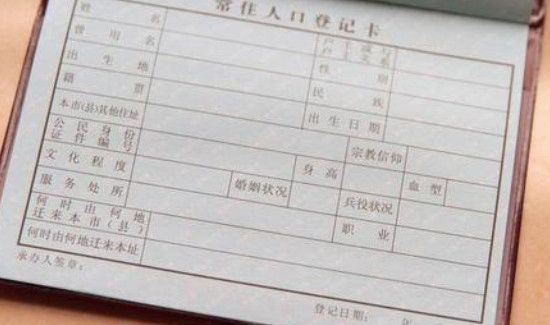 常住人口登记卡
姓名 户主或与户主关系
曾用名 性别
出生地 民族
籍贯 出生日期
本市(县)其他住址 宗教信仰
公民身份证件编号 身高 血型
文化程度 婚姻状况 兵役状况
服务处所 职业
何时由何地迁来本市(县)
何时由何地迁来本址
承办人签章： 登记日期： 年